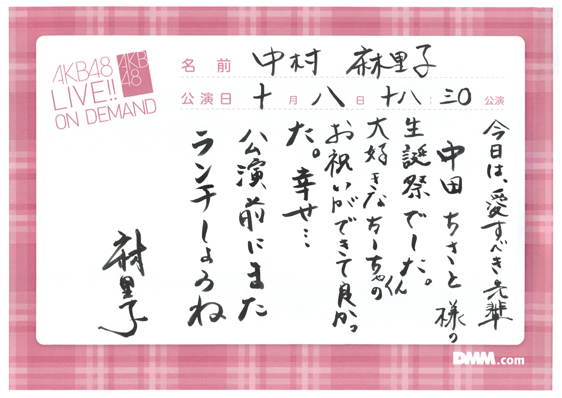 AKB48
LIVE!!
ON DEMAND
AKB
48
名前 中村 麻里子
公演日 十月八日 十八:三〇 公演
今日は、愛すべき先輩
中田 ちさと 様の
生誕祭でした。
大好きなちーちゃんの
お祝いができて良かっ
た。幸せ…
公演前にまた
ランチしようね
麻里子
DMM.com